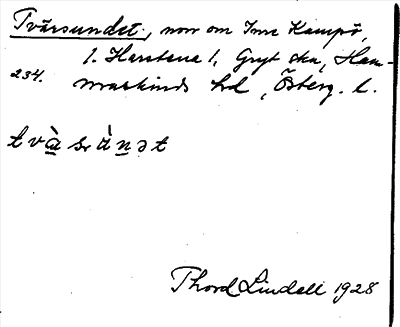 Tvärsundet, norr om Inre Kampö,
1. Harstena 1, Gryt skn, Ham-
234. markinds hd, Österg. l.
tvàsrànət
Thord Lindell 1928